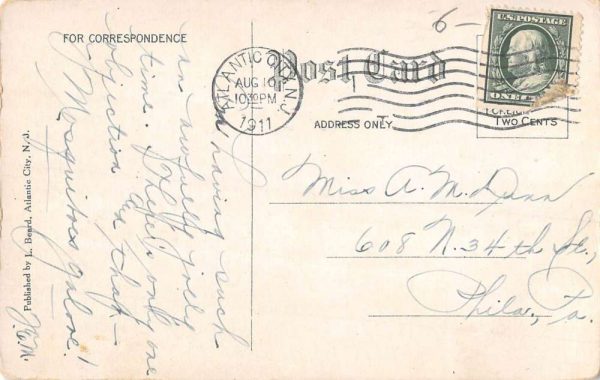 FOR CORRESPONDENCE
Post Card
ADDRESS ONLY
U.S. POSTAGE
ONE
TWO CENTS
6-
ATLANTIC CITY, N.J.
AUG 10
10 30 PM
1911
Am having such
an awfully jolly
time. There's only one
objection & that -
Mosquitoes galore!
J.E.W.
Miss A. M. Dunn
608 N. 34th St.,
Phila., Pa.
Published by L. Beard, Atlantic City, N. J.